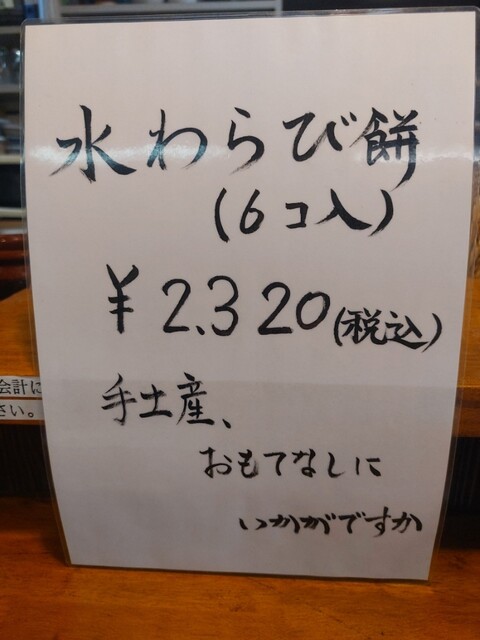 水わらび餅
(6コ入)
¥2,320(税込)
手土産、
おもてなしに
いかがですか
会計に
さい。